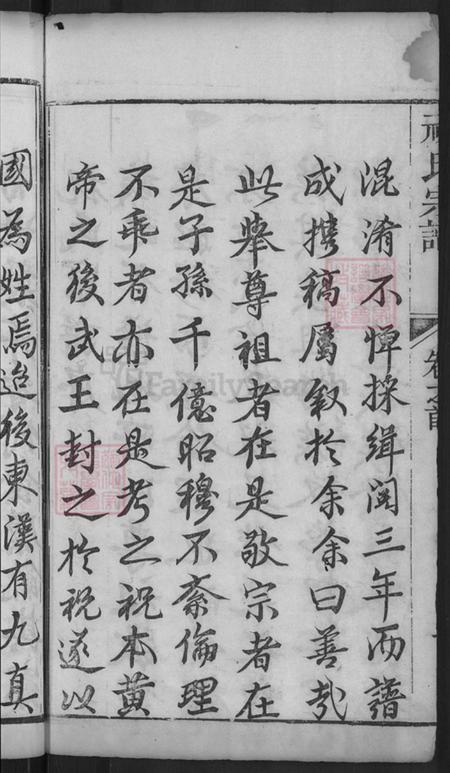 氏宗譜
卷之首
混淆不憚採緝閱三年而譜
成攜稿屬叙於余余曰善哉
此舉尊祖者在是敬宗者在
是子孫千億昭穆不紊倫理
不乖者亦在是考之祝本黄
帝之後武王封之於祝遂以
國為姓焉迨後東漢有九真
FamilySearch